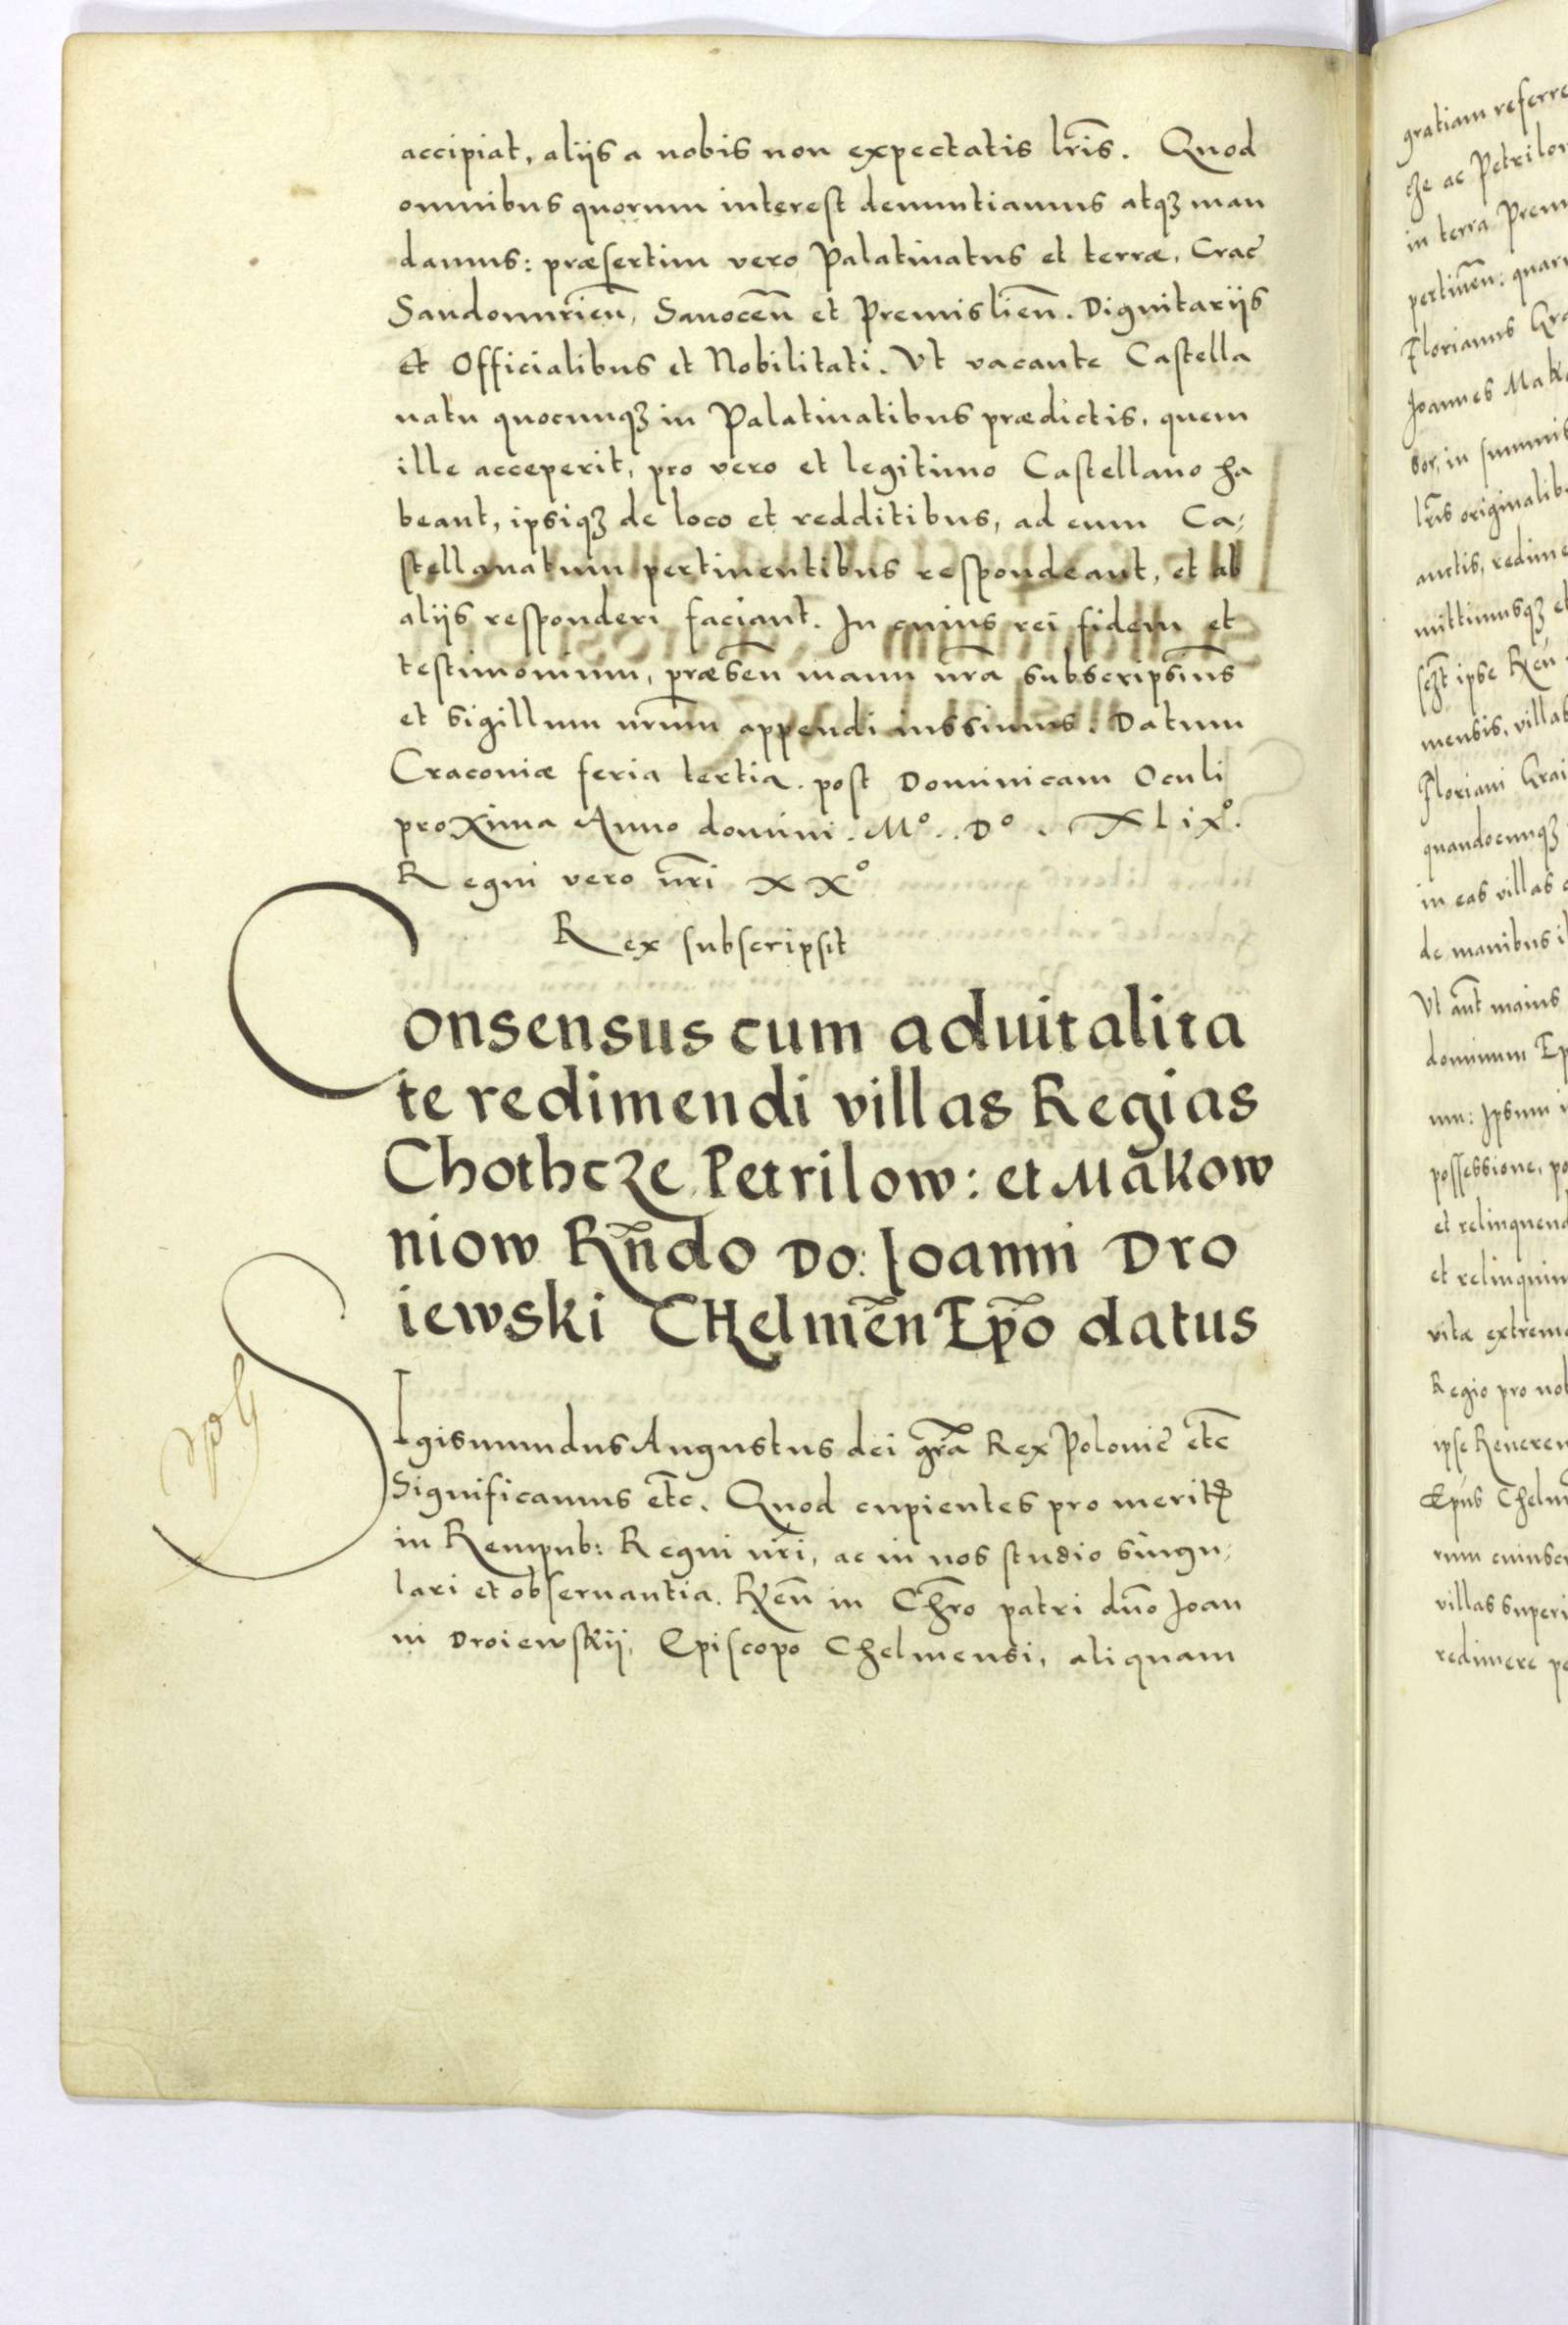 accipiat, aliis a nobis non expectatis lr̃is. Quod
omnibus quorum interest denuntiamus atqꝫ man
damus: præsertim vero Palatinatus et terræ, Crac̄
Sandomirien̄, Sanocen̄ et Premislien̄. Dignitariis
et Officialibus et Nobilitati. Vt vacante Castella
natu quocunqꝫ in Palatinatibus prædictis, quem
ille acceperit, pro vero et legitimo Castellano ha
beant, ipsiqꝫ de loco et redditibus, ad eum Ca-
stellanatum pertinentibus respondeant, et ab
aliis responderi faciant. In cuius rei fidem et
testimonium, præsen̄ manu nr̃a subscripsim̄s
et sigillum nr̃um appendi iussimus. Datum
Craconiæ feria tertia. post Dominicam Oculi
proxima Anno domini. Mº. Dº. XLixº.
Regni vero nr̃i XXº
Rex subscripsit
Consensus cum aduitalita
te redimendi villas Regias
Chothcze Petrilow: et Makow
niow Rn̄do Do: Ioanni Dro
iewski CHelmen̄ Ep̄o datus
SIgismundus Augustus dei gr̃a Rex Polonie etc̄
Significamus etc̄. Quod cupientes pro meritꝭ
in Rempub: Regni nr̃i, ac in nos studio singu-
lari et obseruantia. Reu̅ in Chr̃o patri dn̄o Ioan
ni Droiewskij, Episcopo Chelmensi, aliquam
gratiam referre
cze ac Petrilo
in terra Prem
pertinen̄: quar
Florianus Gra
Ioannes Mak
in summis
lr̃is originalib
auctis, redime
mittimusqꝫ et
ipse
mensis, villas
Floriani Grai
quandocunqꝫ
in eas villas
de manibus i
Vt aut̄ maius
dominum Ep
um: Ipsum i
possessione, po
et relinquend
et relinquim
vitæ extrem
Regio pro nob
ipse Reueren
Ep̄us Chelm
rum cuiusc
villas superi
redimere pe